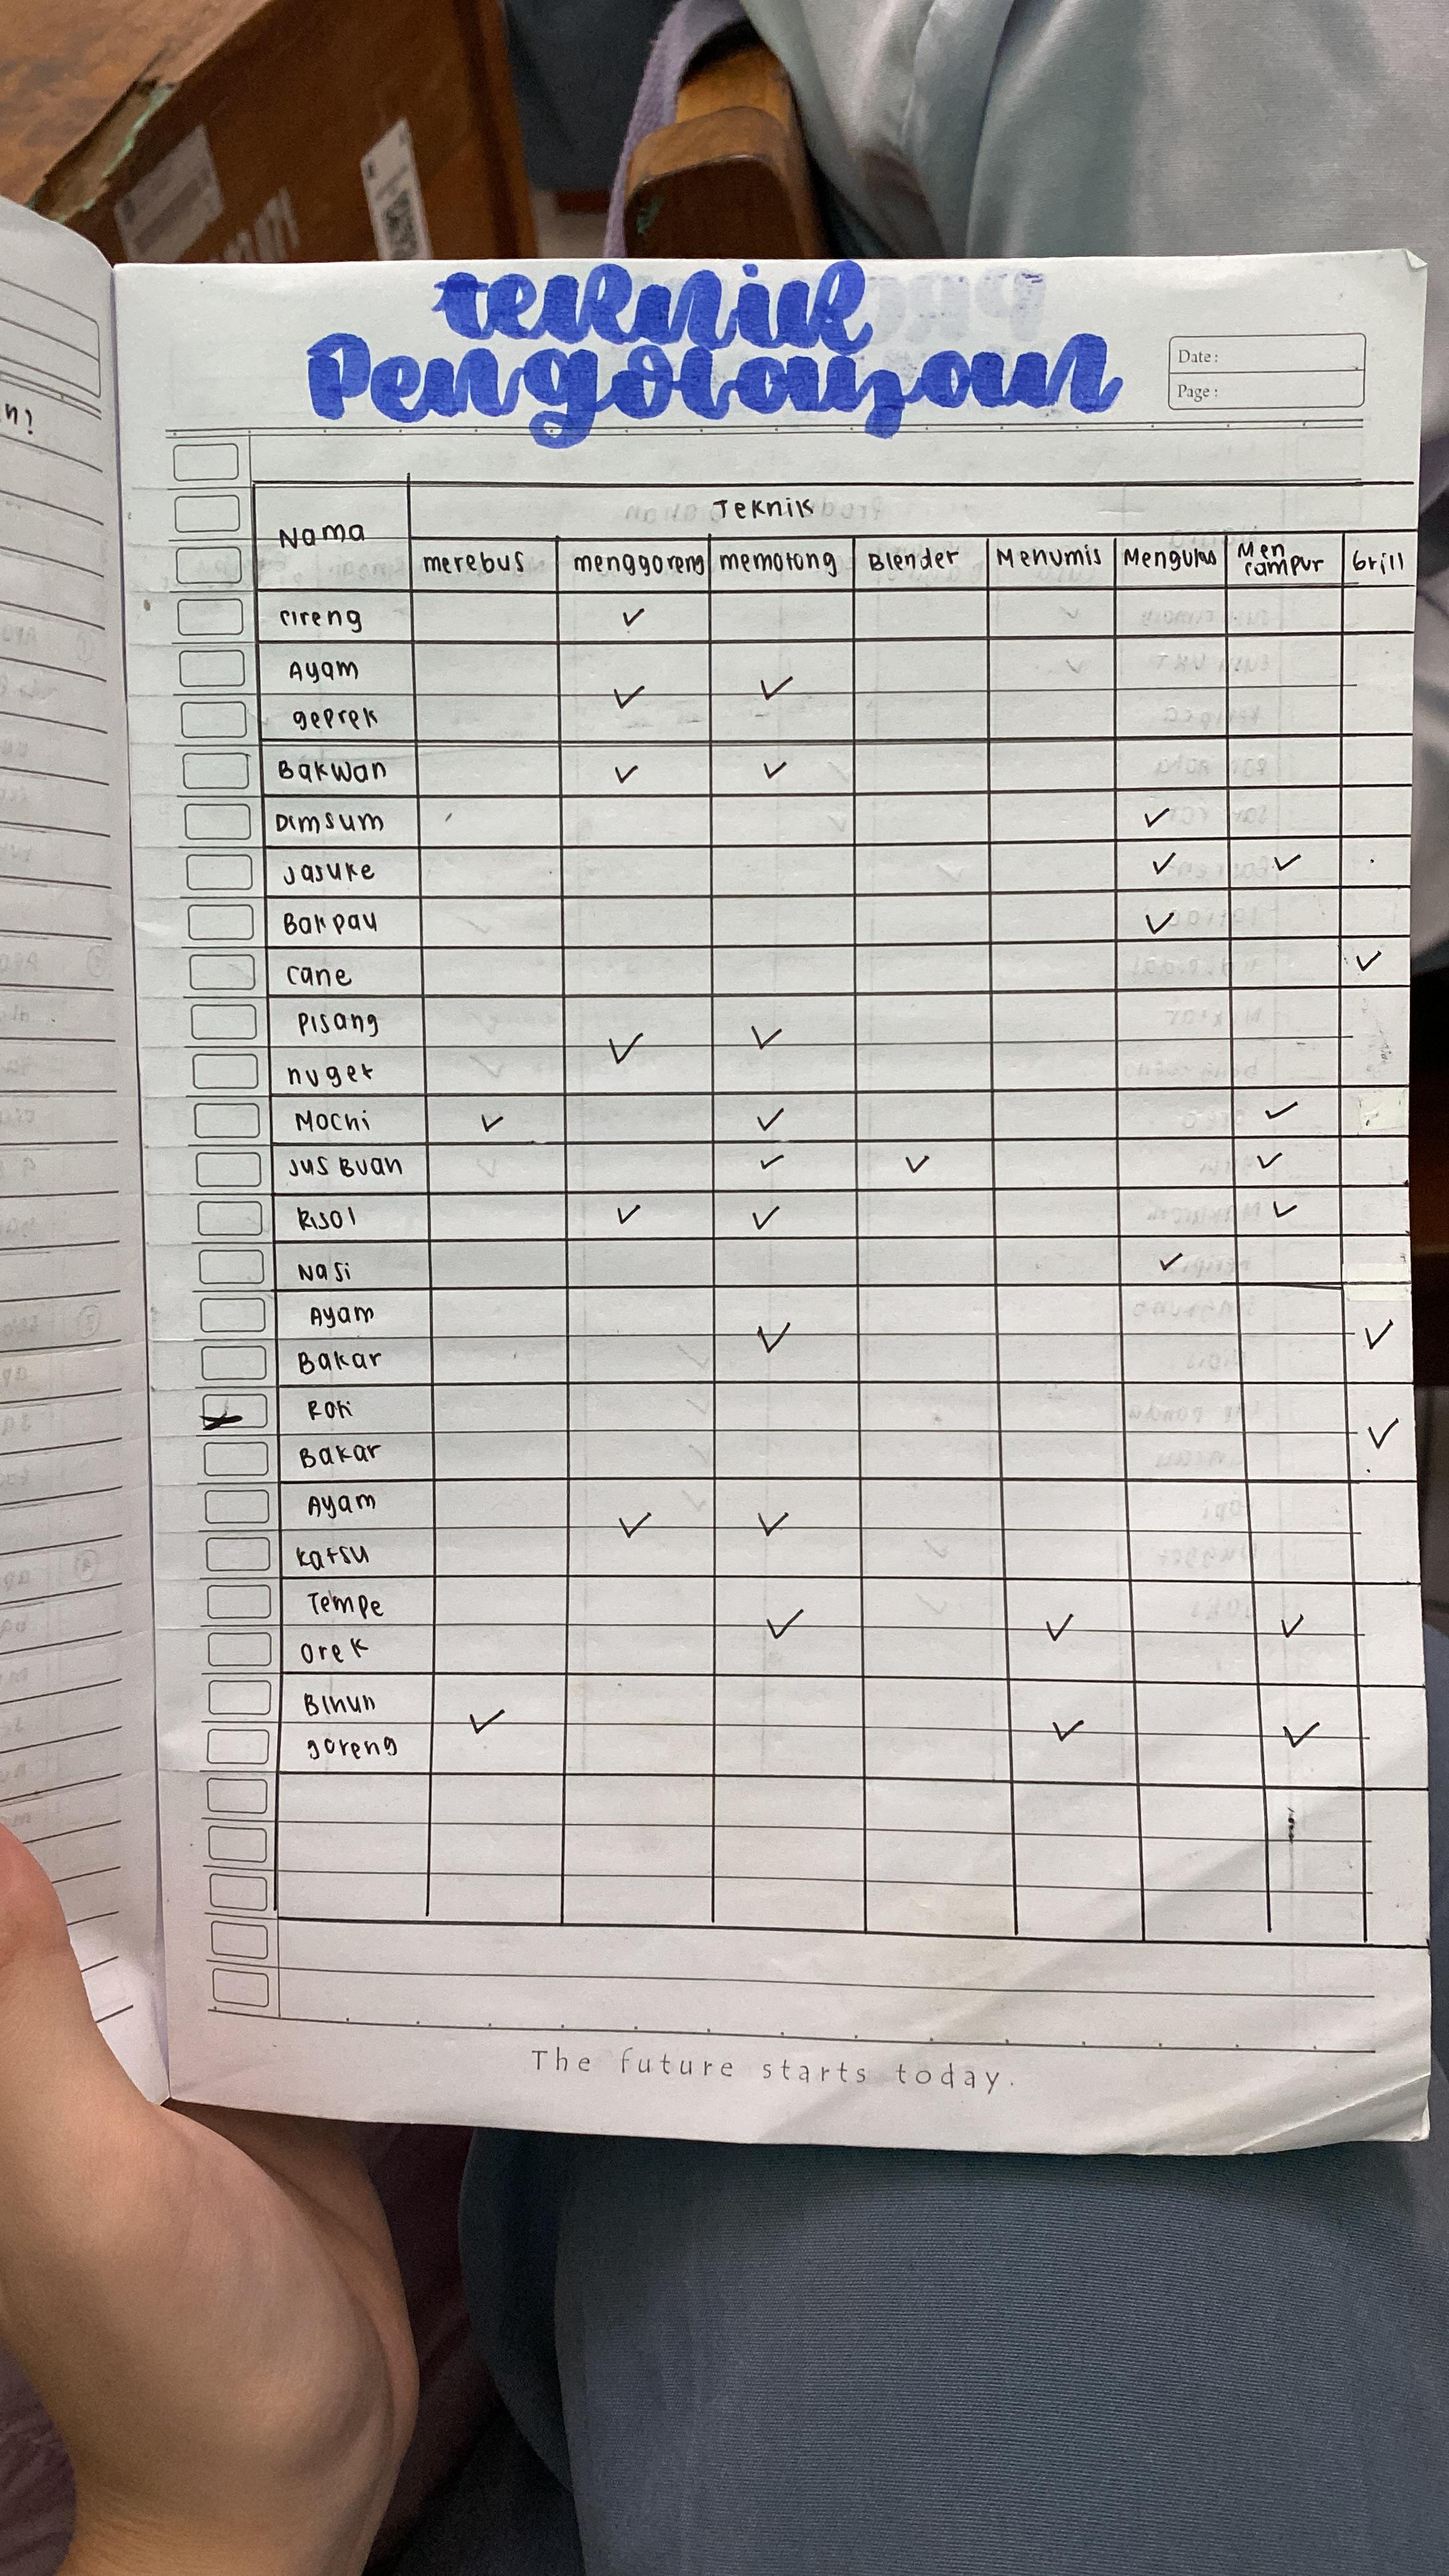 teknik
Pengolayan
Date:
Page:
n?
Nama
Teknik
merebus menggoreng memotong Blender Menumis Mengukus Men campur Grill
cireng ✓
Ayam geprek ✓ ✓
Bakwan ✓ ✓
Dimsum ✓
Jasuke ✓ ✓
Bakpau ✓
cane ✓
Pisang nuget ✓ ✓
Mochi ✓ ✓ ✓
Jus Buah ✓ ✓ ✓
Risol ✓ ✓ ✓
Nasi ✓
Ayam Bakar ✓ ✓
Roti Bakar ✓
Ayam katsu ✓ ✓
Tempe orek ✓ ✓ ✓
Bihun goreng ✓ ✓ ✓
The future starts today.